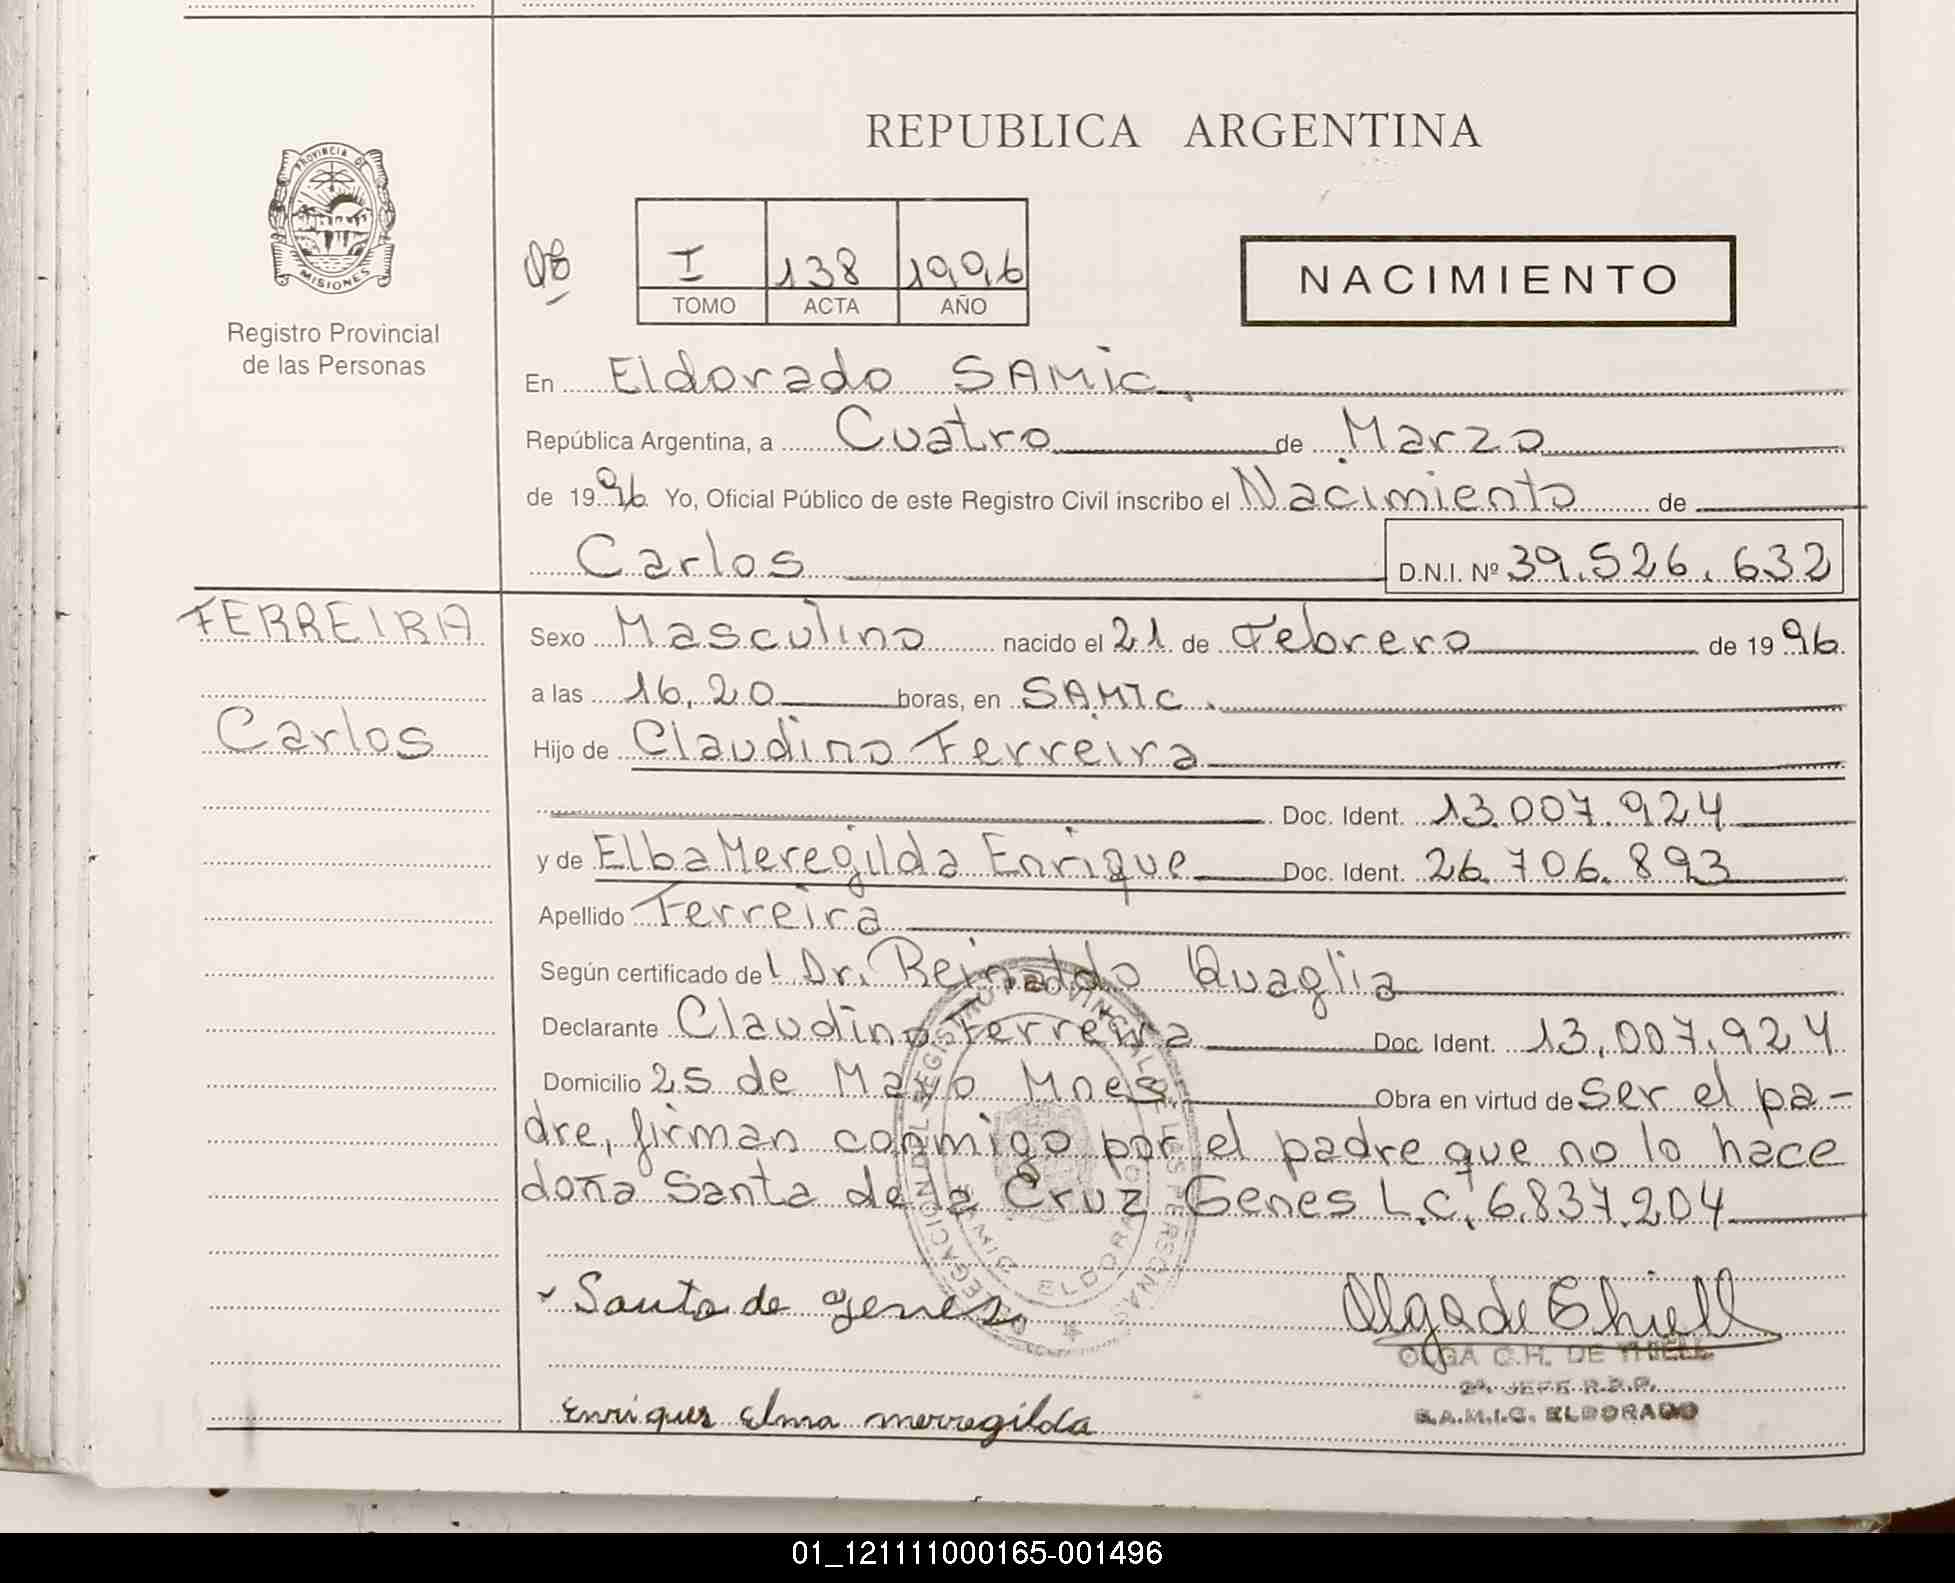 REPUBLICA ARGENTINA
PROVINCIA DE
MISIONES
Registro Provincial
de las Personas
I 138 1996
TOMO ACTA AÑO
NACIMIENTO
En Eldorado SAMic.
República Argentina, a Cuatro de Marzo
de 1996 Yo, Oficial Público de este Registro Civil inscribo el Nacimiento de
Carlos D.N.I. Nº 39.526.632
FERREIRA
Carlos
Sexo Masculino nacido el 21 de Febrero de 1996.
a las 16,20 horas, en SAMIC.
Hijo de Claudino Ferreira
Doc. Ident. 13.007.924
y de Elba Meregilda Enrique Doc. Ident. 26.706.893
Apellido Ferreira
Según certificado del Dr. Reinaldo Quaglia
Declarante Claudino Ferreira Doc. Ident. 13.007.924
Domicilio 25 de Mayo Mnes. Obra en virtud de ser el pa-
dre, firman conmigo por el padre que no lo hace
doña Santa de la Cruz Genes L.C. 6.837.204
DELEGACION DEL REGISTRO PROVINCIAL DE LAS PERSONAS
ELDORADO
Santa de Genes Olga de Thiell
OLGA G.H. DE THIELL
2ª JEFE R.P.P.
S.A.M.I.C. ELDORADO
Enriques Elma merregilda
01_121111000165-001496